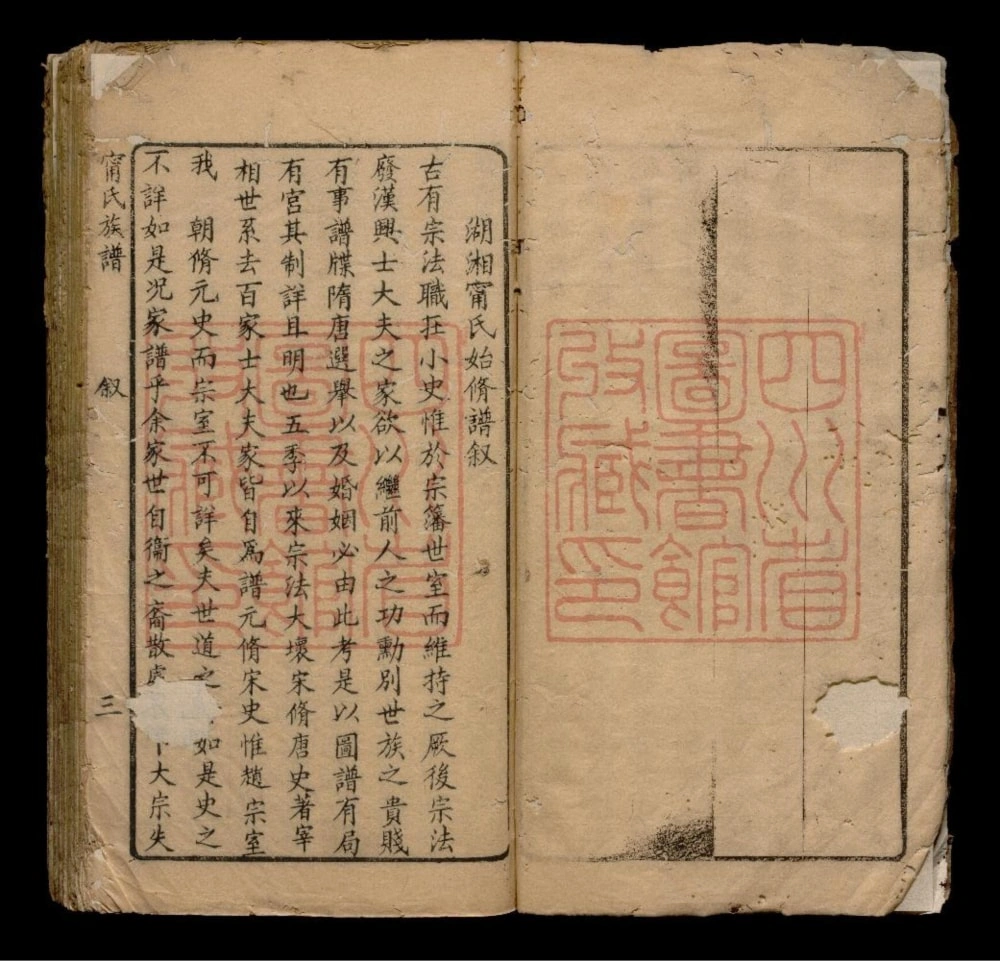 湖湘甯氏始脩譜叙
古有宗法職在小史惟於宗籓世室而維持之厥後宗法
廢漢興士大夫之家欲以繼前人之功勳別世族之貴賤
有事譜牒隋唐選舉以及婚姻必由此考是以圖譜有局
有宮其制詳且明也五季以來宗法大壞宋脩唐史著宰
相世系去百家士大夫家皆自爲譜元脩宋史惟趙宗室
我 朝脩元史而宗室不可詳矣夫世道之 如是史之
不詳如是况家譜乎余家世自衛之裔散處 下大宗失
甯氏族譜 叙 三
四川省
圖書館
收藏印